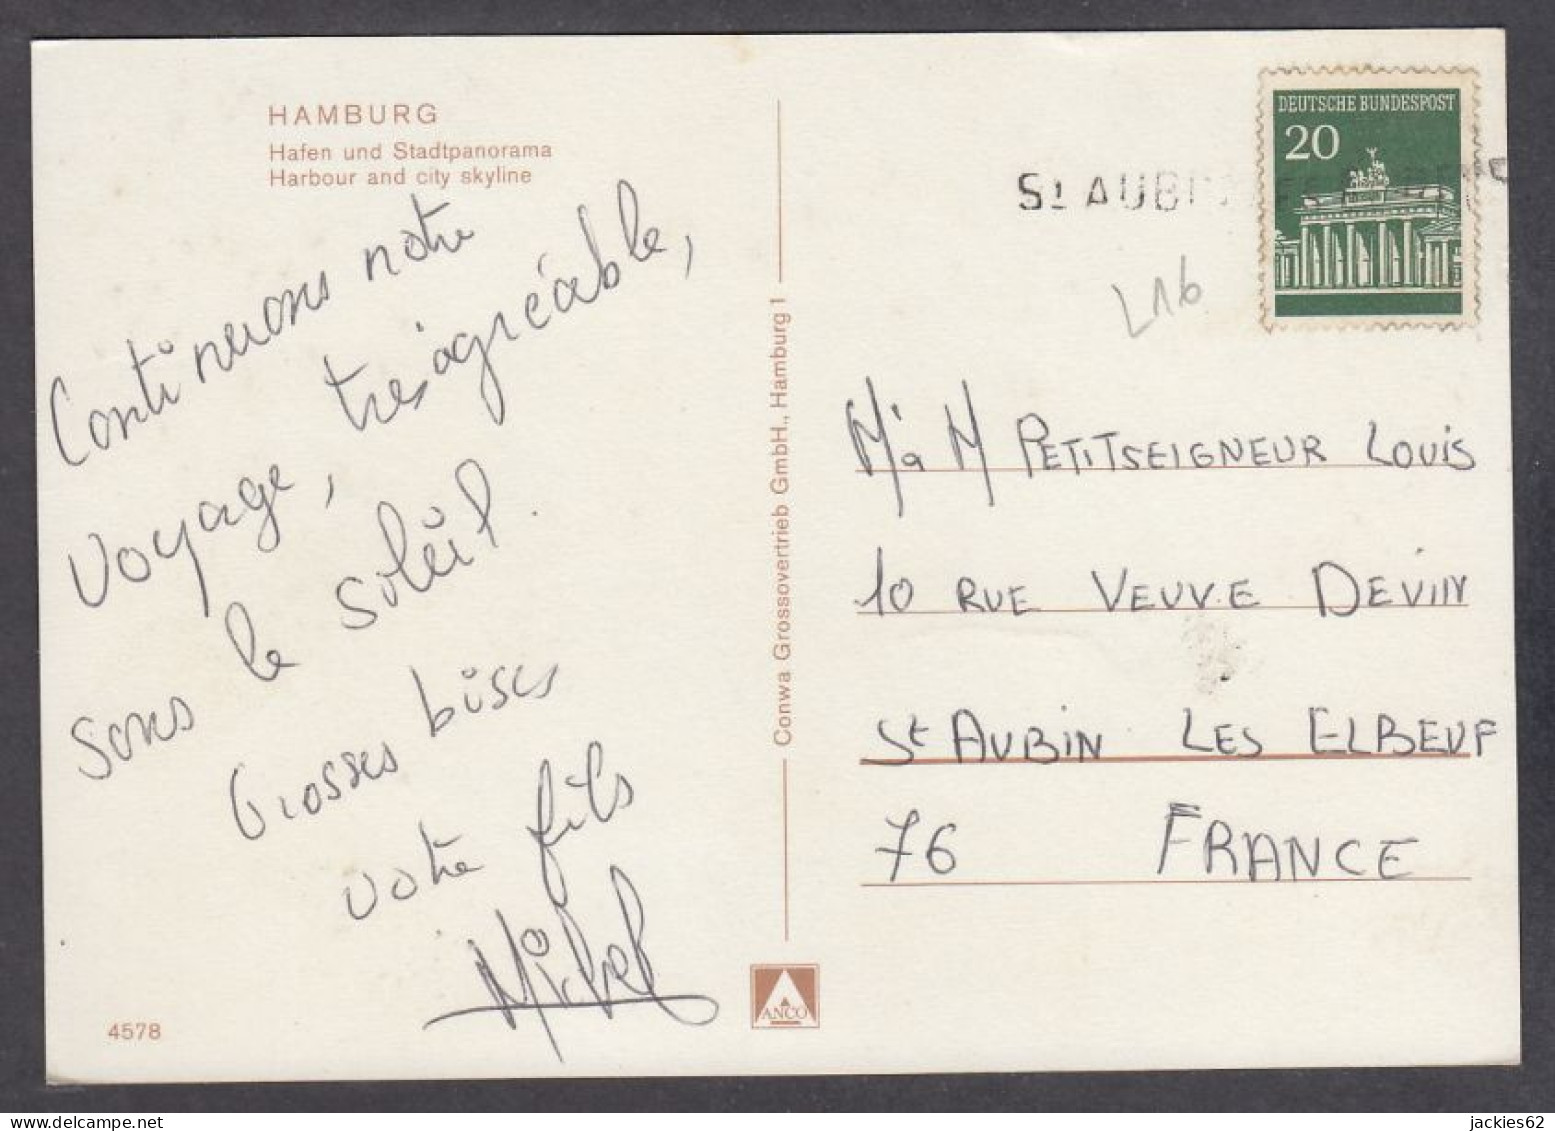 HAMBURG
Hafen und Stadtpanorama
Harbour and city skyline
Continuons notre
voyage, très agréable,
sous le soleil.
Grosses bises
votre fils
Michel
4578
Conwa Grossovertrieb GmbH., Hamburg 1
ANCO
DEUTSCHE BUNDESPOST
20
St AUBIN LES ELBEUF
L16
M à M PETITSEIGNEUR LOUIS
10 RUE VEUVE DEVIN
St AUBIN LES ELBEUF
76 FRANCE
jackies62